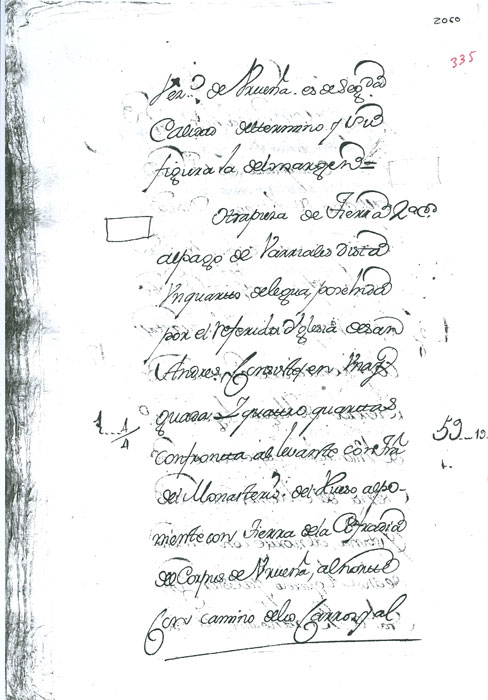 2060
335
de Urueña. es de Segda
Calidad determino y su
figura la del margen =
Otra pieza de Tierra
al pago de Varriales dista
Un quarto de legua, posehida
por el referida Yglesia de san
Andres. Consiste en Una
quarta y quatro quartas
1 1/4
59
confronta al levante con tra
del Monasterio del Vueso al po-
niente con Tierra de la Cofradia
del Corpus de Urueña, al norte
Con camino de los Carros y al